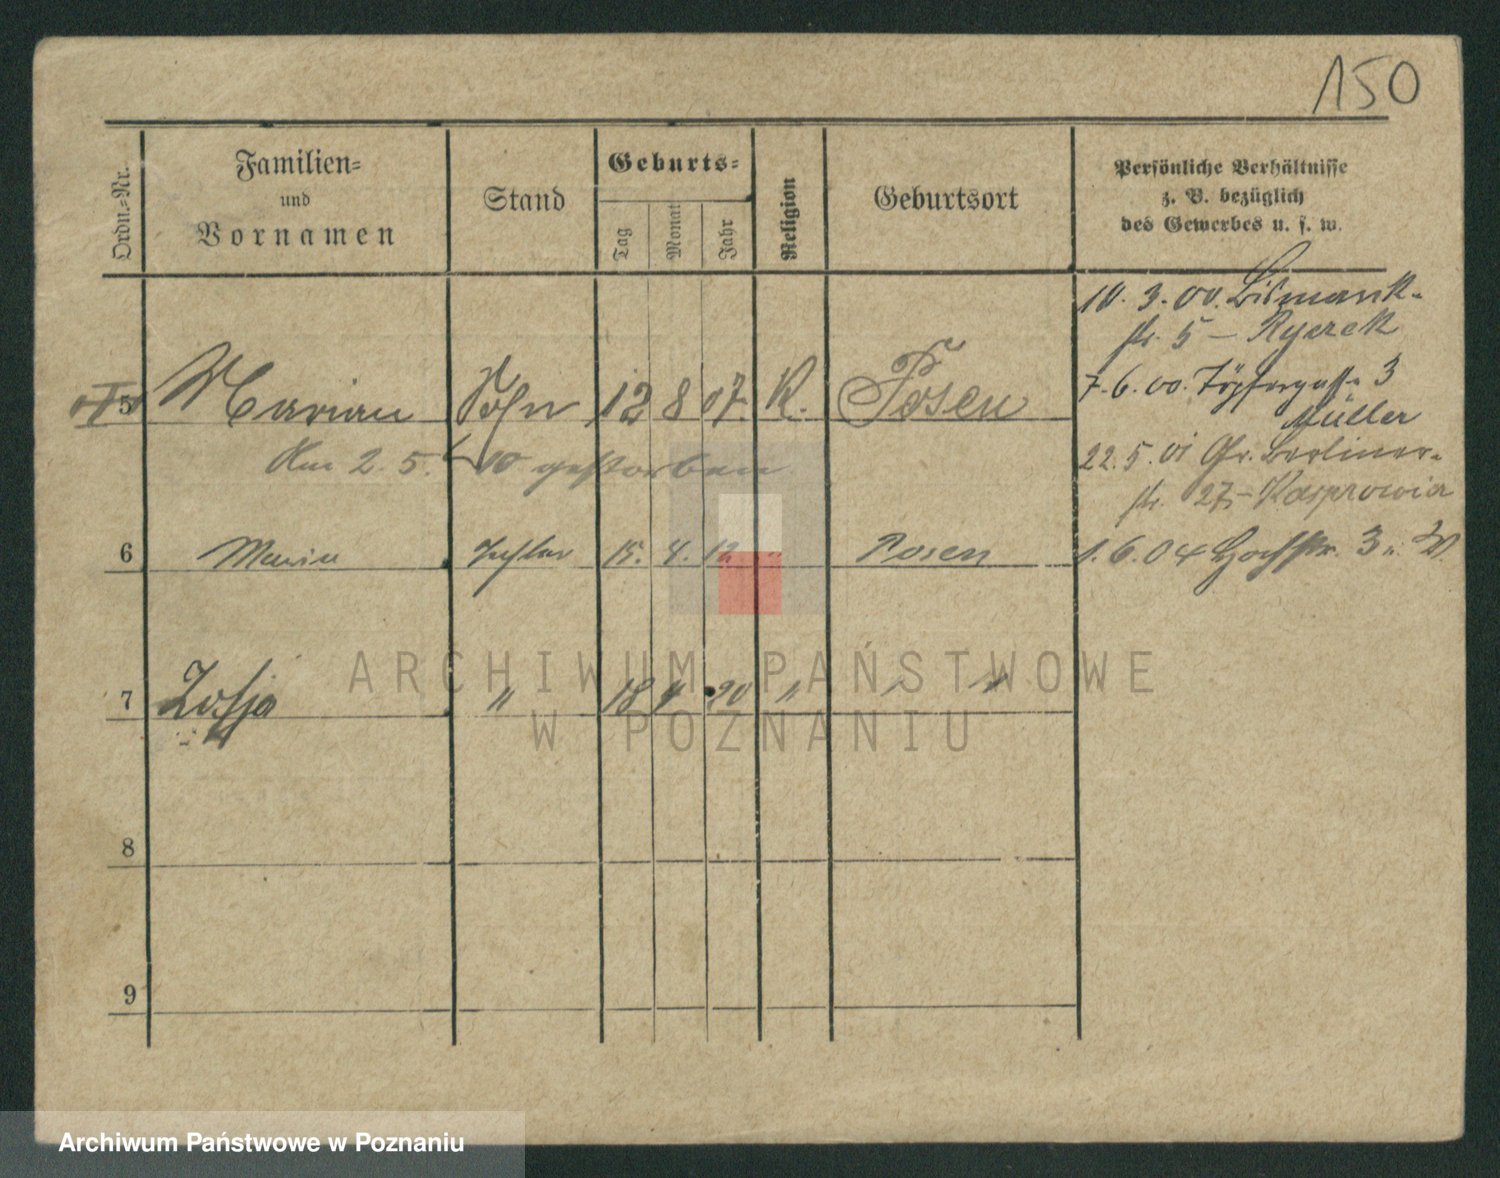 150
Ordn.=Nr.
Familien=
und
Vornamen
Stand
Geburts=
Tag
Monat
Jahr
Religion
Geburtsort
Persönliche Verhältnisse
z. B. bezüglich
des Gewerbes u. s. w.
10. 3. 00. Bismarck-
str. 5 –
7. 6. 00. Töpfergasse 3
Müller
22. 5. 01 Gr. Berliner-
str. 27 –
1. 6. 04 Hochstr. 3
5 Marian Sohn 12 8 07. K. Posen
Am 2. 5. 10 gestorben
6 Maria Tochter 15. 4. 12 " Posen
7 Zofja " 18 4 20 " " "
8
9
ARCHIWUM PAŃSTWOWE
W POZNANIU
Archiwum Państwowe w Poznaniu